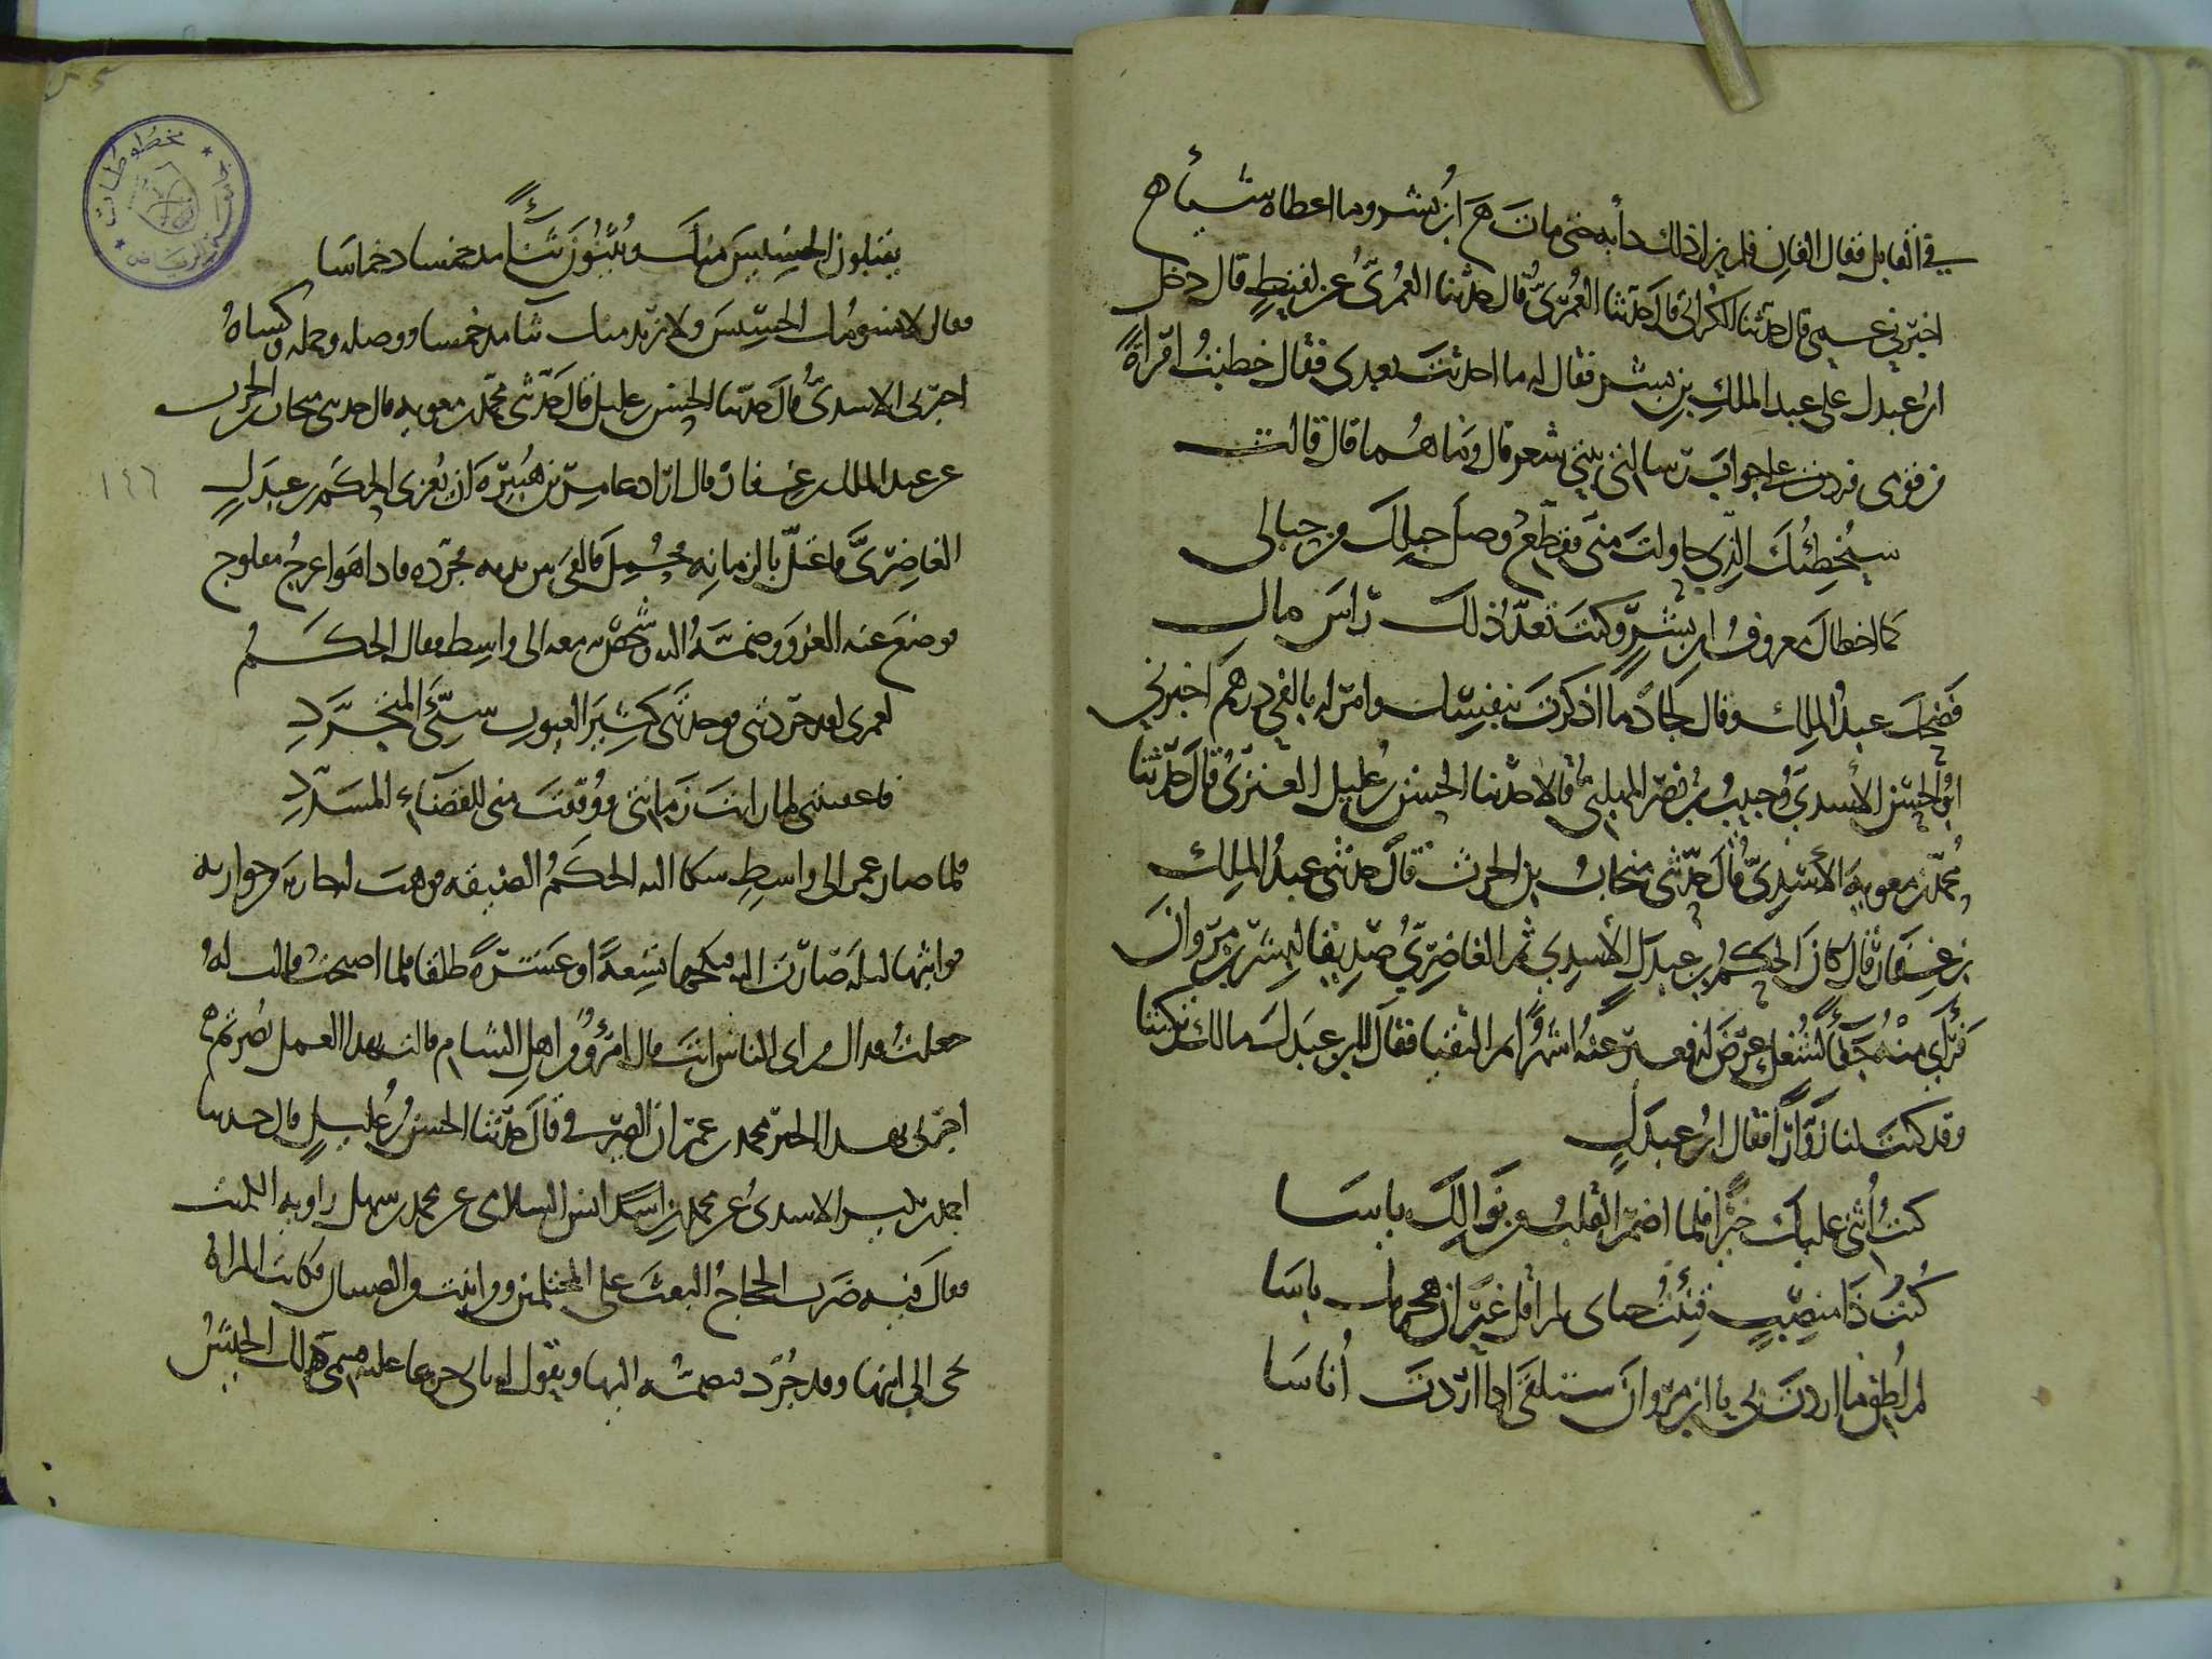 في القابل فقال الفان فلم يزل ذلك دأبه حتى مات ابن بشر وما اعطاه شيأ
اخبرني عمي قال حدثنا الكراني قال حدثنا العمري قال حدثنا العمري عن لقيط قال دخل
ابن عبدل على عبد الملك بن بشر فقال له ما احدثت بعدي فقال خطبت امرأة
من قومي فردت علي جواب رسالتي ببيتي شعر قال وما هما قال قالت
سيخطئك الذي حاولت مني فقطع وصل حبلك من حبالي
كما اخطاك معروف ابن بشر وكنت تعد ذلك راس مال
فضحك عبد الملك وقال لجاد ما اذكرت بنفسك وامر له بالفي درهم اخبرني
ابو الحسن الأسدي وحبيب بن نصر المهلبي قالا حدثنا الحسن بن عليل العنزي قال حدثنا
محمد بن معوية الأسدي قال حدثني منجاب بن الحرث قال حدثني عبد الملك
بن عفان قال كان الحكم بن عبدل الأسدي ثم الغاضري صديقا لبشر بن مروان
فرأى منه جفاء لشغل عرض له فغبر عنه شهرا ثم التقيا فقال يابن عبدل مالك تركتنا
وقد كنت لنا زوارا فقال ابن عبدل
كنت أثني عليك خيرا فلما اضمر القلب من نوالك ياسا
كنت ذا منصب قنئت حياي لم اقل غير ان هجرتك باسا
لم اطق ما اردت بي يا ابن مروان ستلقى اذا اردت أناسا
يقبلون الخسيس منك ويثنون ثناء مدخمسا دخماسا
فقال لا نسومك الخسيس ولا نريد منك ثنا مدخمسا ووصله وحمله وكساه
اخبرني الاسدي قال حدثنا الحسن بن عليل قال حدثني محمد بن معوية قال حدثني منجاب بن الحرث
عن عبد الملك بن عفان قال اراد عمر بن هبيرة ان يغزى الحكم بن عبدل
الغاضري فاعتل بالزمانة فحمل فالقي بين يديه فجرده فاذا هو اعرج مفلوج
فوضع عنه الغزو وضمه اليه وشخص به معه الى واسط فقال الحكم
لعمري لقد جردتني فوجدتني كثير العيوب سيئ المتجرد
فاعفيتني لما رايت زمانتي ووفقت مني للقضاء المسدد
فلما صار عمر الى واسط شكا اليه الحكم الضيقة فوهب له جارية من جواريه
فواثبها ليلة صارت اليه فنكحها تسعة او عشرة طلقا فلما اصبحت قالت له
جعلت فداك من اي الناس انت قال امرؤ من اهل الشام قالت بهذا العمل نصرتم
اخبرني بهذا الخبر محمد بن عمران الصيرفي قال حدثنا الحسن بن عليل قال حدثنا
احمد بن بكير الاسدي عن محمد بن انس السلامي عن محمد بن سهل راوية الكميت
فقال فيه ضرب الحجاج البعث على المحتلمين ومن انبت من الصبيان فكانت المراة
تجي الى ابنها وقد جرد فتضمه اليها وتقول له بابي جزعا عليه فسمي ذلك الجيش
١٤٦
مخطوطات
الرياض